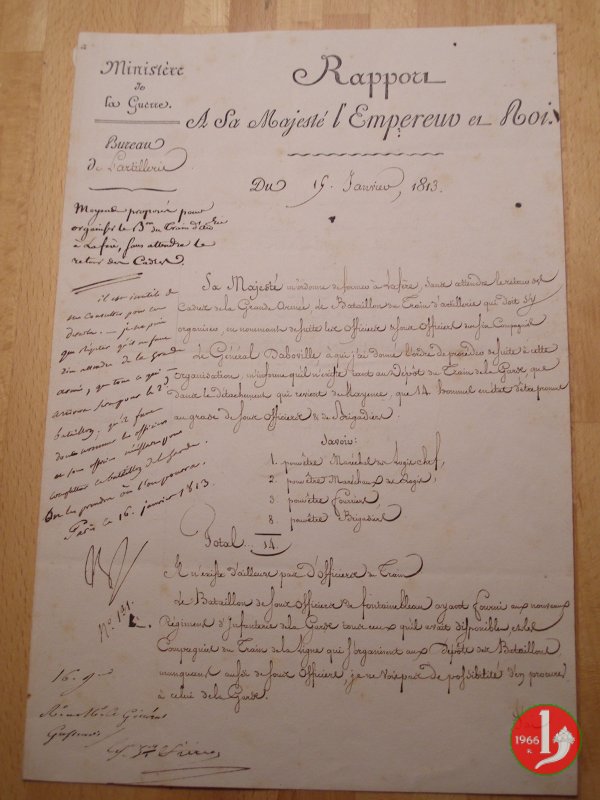 Ministère
de
la Guerre.
Bureau
de l'artillerie
Rapport
A Sa Majesté l'Empereur et Roi.
Du 15 Janvier, 1813.
Moyens proposés pour
organiser le Bon du Train d'art
à Lafère, sans attendre le
retour des Cadres.
il est inutile de
me consulter pour ces
je ne puis
que répéter qu'il ne faut
rien attendre de la grande
armée, que tous ce qui
arrivera sera pour le 2d
bataillon, qu'il faut
donc nommer les officiers
et sous officiers
completter ce bataillon de la garde
les prendre où l'on pourra.
Paris le 16 janvier 1813.
No. 191.
16. 9
Sa Majesté m'ordonne de former à Lafère, sans attendre le retour des
Cadres de la Grande Armée, le Bataillon du Train d'artillerie qui doit s'y
organiser en nommant de suite les Officiers & sous Officiers des six Compagnies
Le Général Daboville à qui j'ai donné l'ordre de procéder de suite à cette
organisation, m'informe qu'il n'existe tant au Dépôt du Train de la Garde, que
dans le détachement qui revient de Mayence, que 14 hommes en état d'être promus
au grade de sous Officiers & de Brigadiers.
Savoir:
1. pour être Maréchal des Logis Chef,
2. pour être Maréchaux des Logis,
3 pour être Fourriers
8. pour être Brigadiers
Total.. 14.
Il n'existe d'ailleurs pas d'Officiers du Train
Le Bataillon de sous Officiers de fontainebleau ayant fourni aux nouveaux
Régimens d'Infanterie de la Garde tous ceux qu'il avait disponibles et les
Compagnies du Train de la Ligne qui s'organisent aux Dépôts des Bataillons
manquant aussi de sous Officiers, je ne vois pas de possibilité d'en procurer
à celui de la Garde.
1966
R